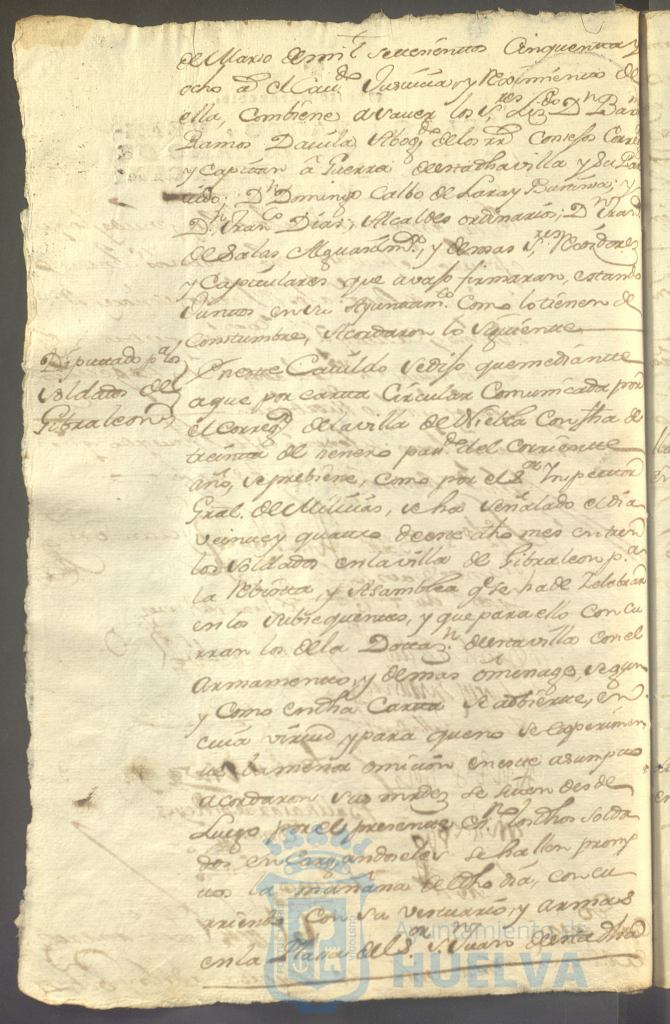 de Marzo de mil setecientos Cinquenta y
ocho a.s el Cav.do Justicia, y Reximiento de
ella, combiene a saver los S.res Liz.do D.n
Ramos Davila Abog.do de los R.s Consejos Corre
y Capitan â Guerra desta dha villa y su Par
tido; D.n Domingo Calbo de Lara y y
D.n Fran.co Dias, Alcaldes ordinarios; D.n Fran.
de Salas Alguacil m.r, y demas S.res Rexidores
y Capitulares que avajo firmaran, estando
Juntos en su Ayuntam.to Como lo tienen de
Constumbre, Acordaron lo siguiente
Diputado p.a los
soldados de
Gibraleon
En este Cavildo se dijo que mediante
a que por carta Circular Comunicada por
el Correg.r de la villa de Niebla Con fha de
treinta de henero pas.do del Corriente
año, se prebiene, como por el S.or Inspector
Gral. de Milicias, se ha señalado el dia
veinte y quatro de este dho mes entren
los soldados en la villa de Gibraleon p.a
la Rebista, y Asamblea q.e se ha de Zelebrar
en los subsequentes, y que para ello concu
rran los de la Dottaz.n desta villa con el
Armamento, y demas omenage, segun
y Como en dha Carta se adbierte, en
cuia virtud y para que no se experimen
te la menor omision en este asumpto
acordaron sus mrdes se citen desde
Luego por el presente es.no los dhos solda
dos encargandoles se hallen promp
tos la mañana de dho dia, con cu
rriendo Con su vestuario, y armas
en la Plaza de S.or S. Juan desta dha
Ayuntamiento de
HUELVA